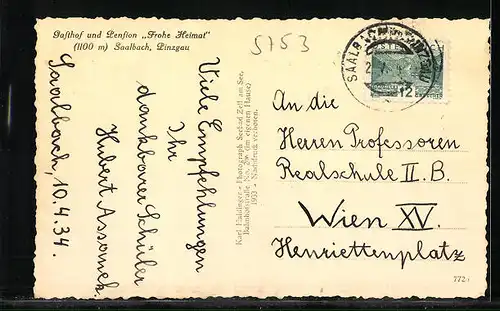 Gasthof und Pension „Frohe Heimat"
(1100 m) Saalbach, Pinzgau
5153
Saalbach, 10.4.34.
Viele Empfehlungen
Ihr
dankbarer Schüler
Hubert
Karl Haidinger - Photograph Seehof Zell am See,
Bahnhofstraße No. (im eigenen Hause)
1933 - Nachdruck verboten.
SAALBACH
12
An die
Herren Professoren
Realschule II. B.
Wien XV.
Henriettenplatz
772